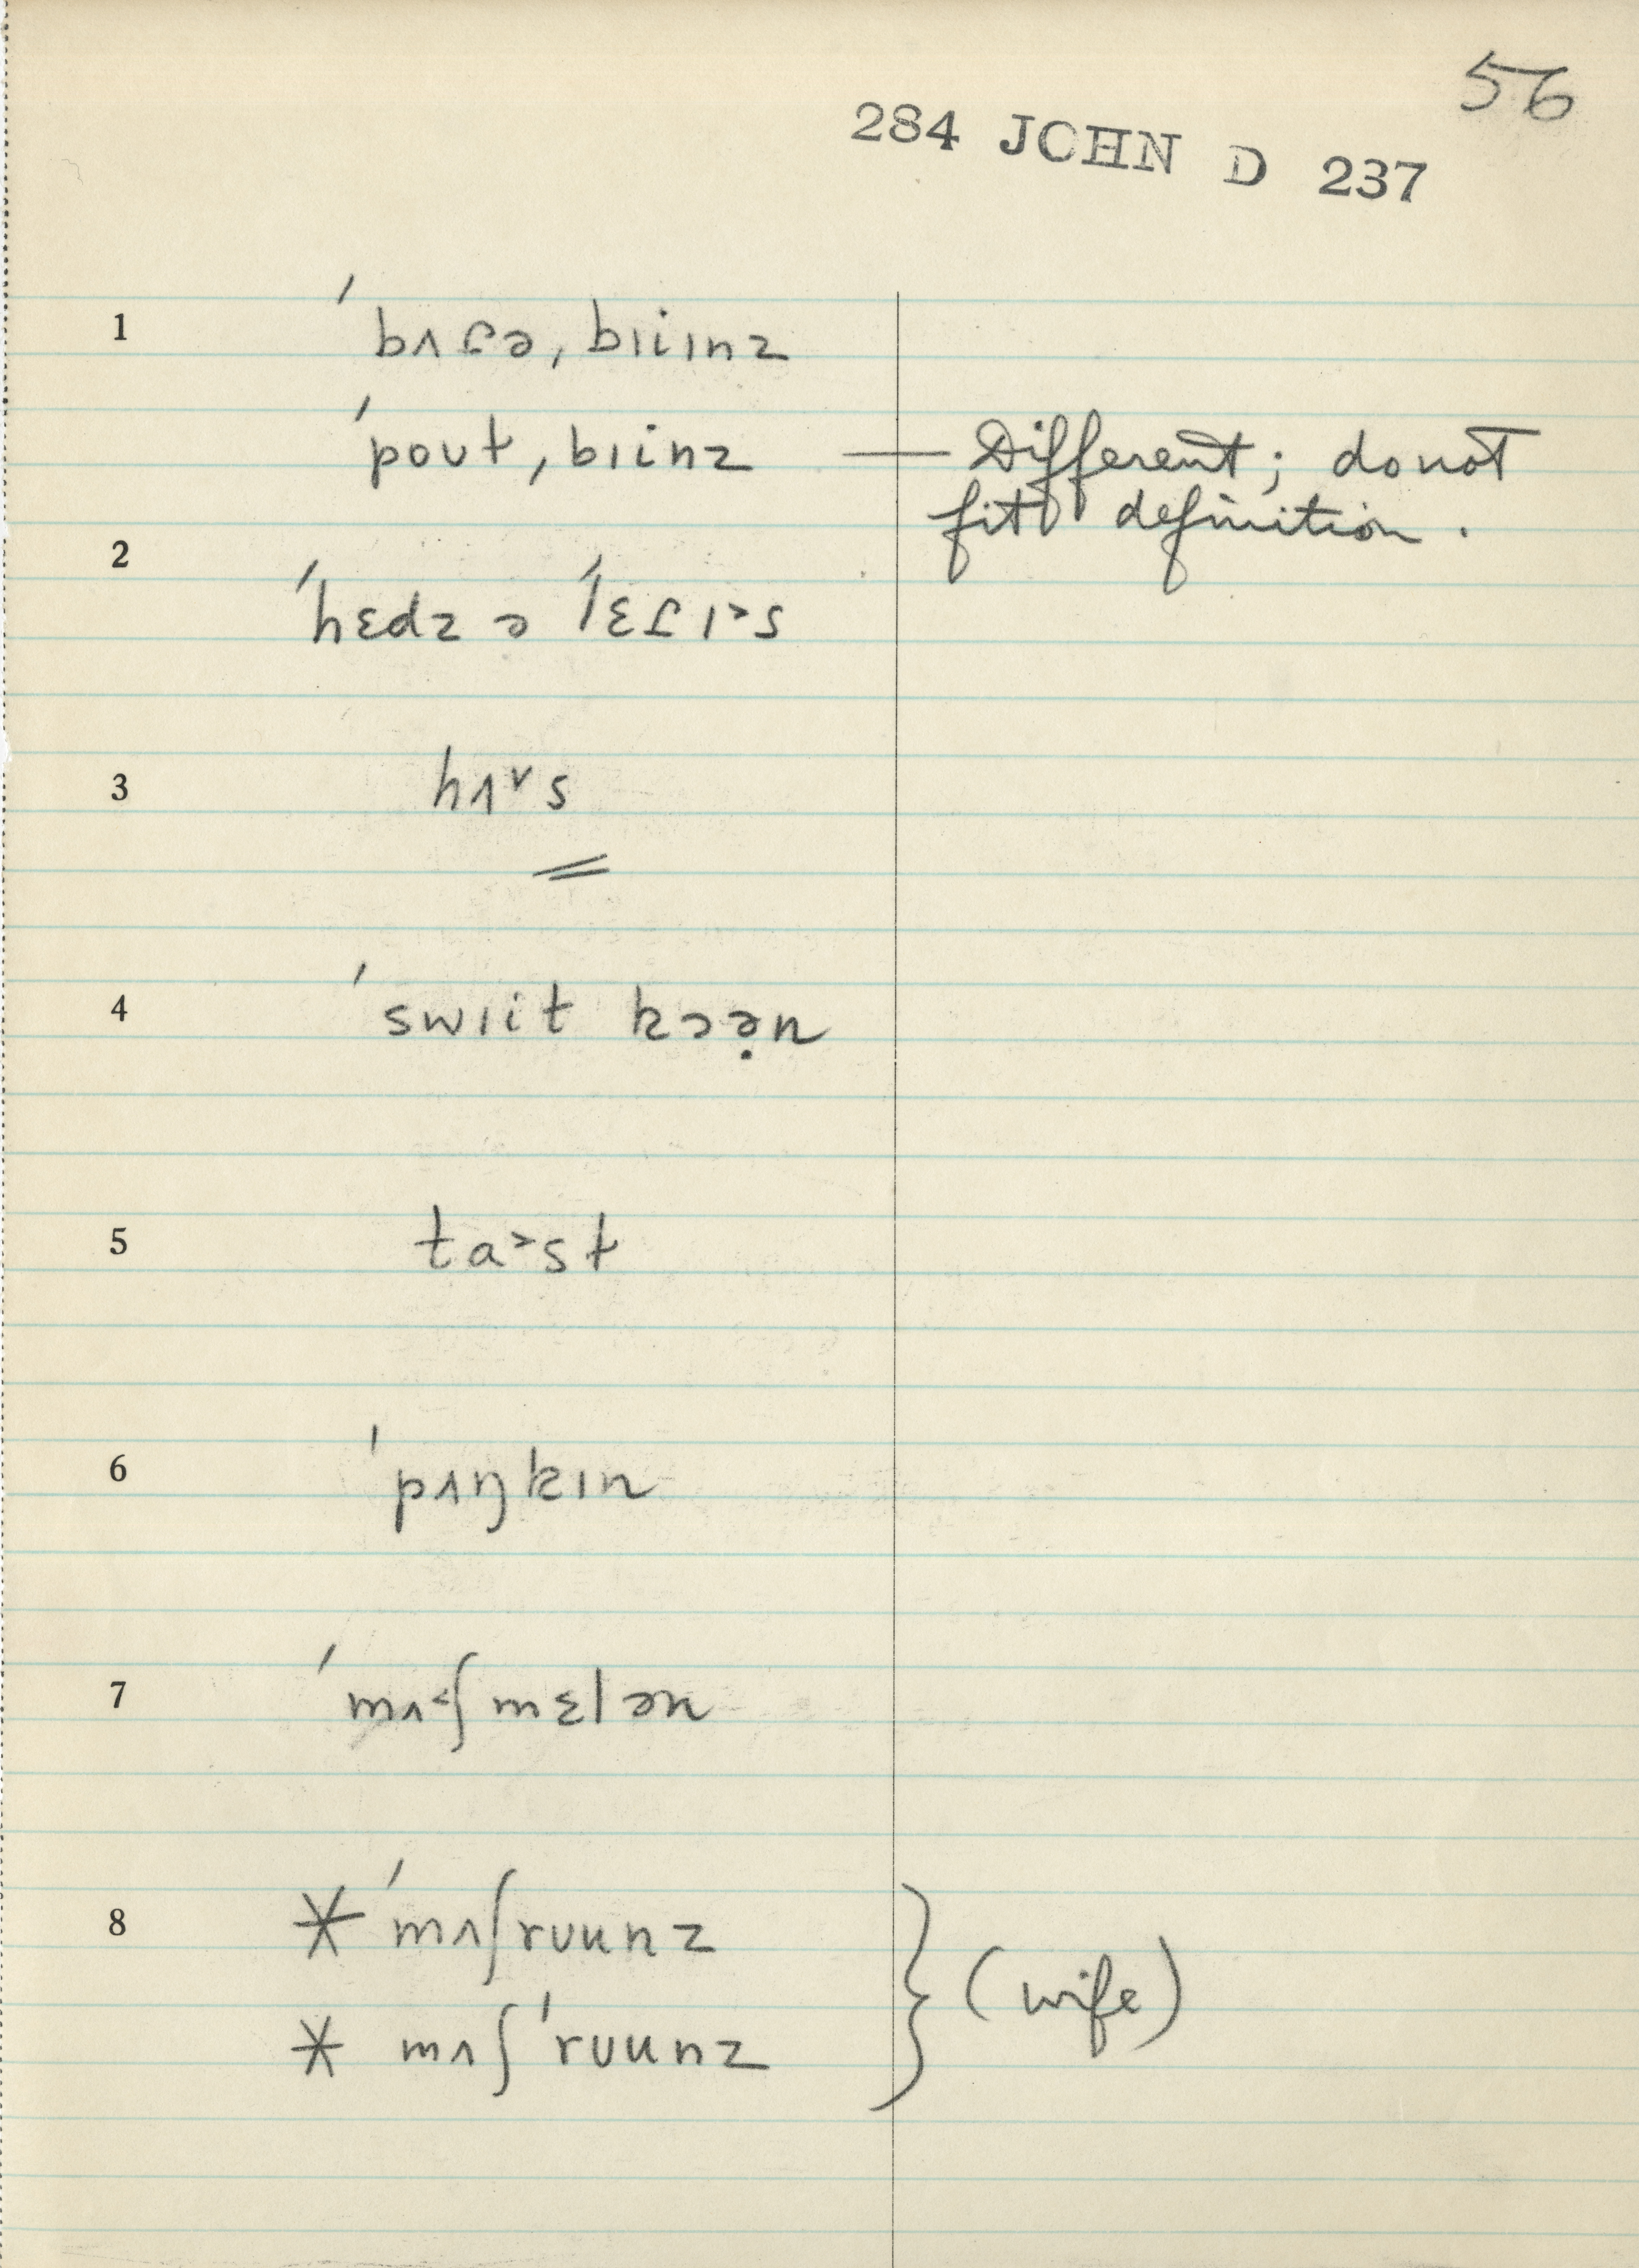 56
284 JOHN D 237
1 ˈbʌɾə, bɪiɪnz
ˈpoʊt, bɪinz — Different; do not
fit definition.
2
ˈhɛdz ə ˈlɛɾɪ˃s
3 hʌ˅s
4 ˈswɪit kɔə̣n
5 ta˃st
6 ˈpʌŋkɪn
7 ˈmʌ˂ʃmɛlən
8 * ˈmʌʃrʊunz
* mʌʃˈrʊunz } (wife)